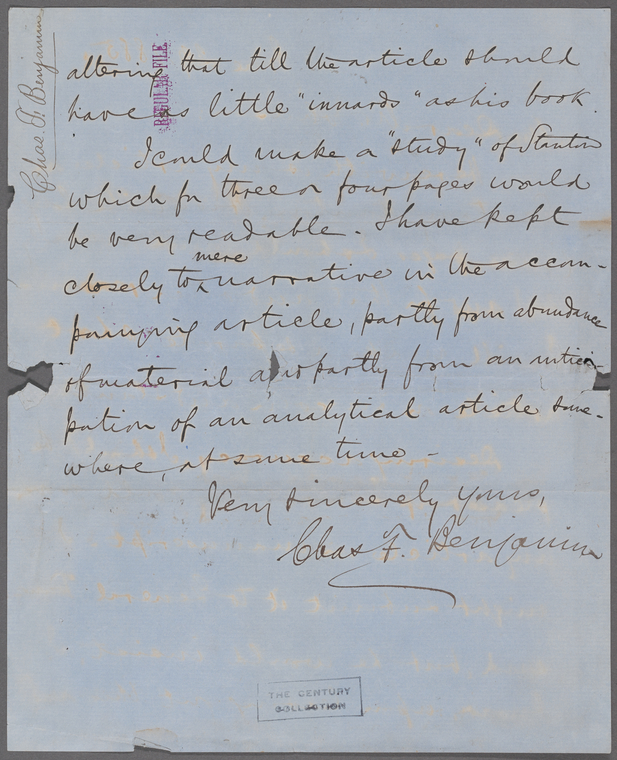 Chas. F. Benjamin
REGULAR FILE
altering that till the article should
have as little "innards" as his book
I could make a "study" of Stanton
which for three or four pages would
be very readable. I have kept
closely to mere narrative in the accom-
panying article, partly from abundance
of material and partly from an antici-
pation of an analytical article some-
where, at some time -
Very sincerely yours,
Chas F. Benjamin
THE CENTURY
COLLECTION